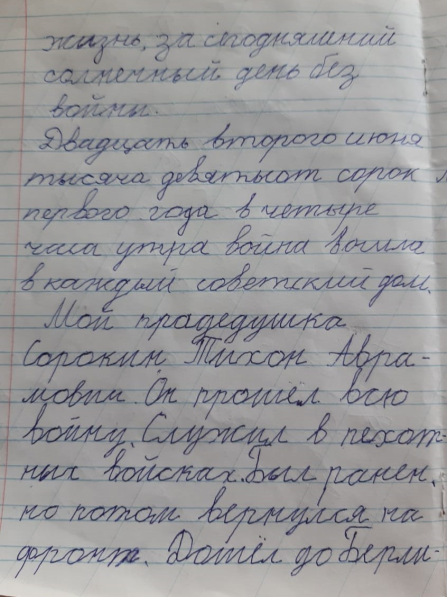 жизнь, за сегодняшний
солнечный день без
войны.
Двадцать второго июня
тысяча девятьсот сорок
первого года в четыре
часа утра война вошла
в каждый советский дом.
Мой прадедушка
Сорокин Тихон Авра-
мович. Он прошёл всю
войну. Служил в пехот-
ных войсках. Был ранен,
но потом вернулся на
фронт. Дошёл до Берли-